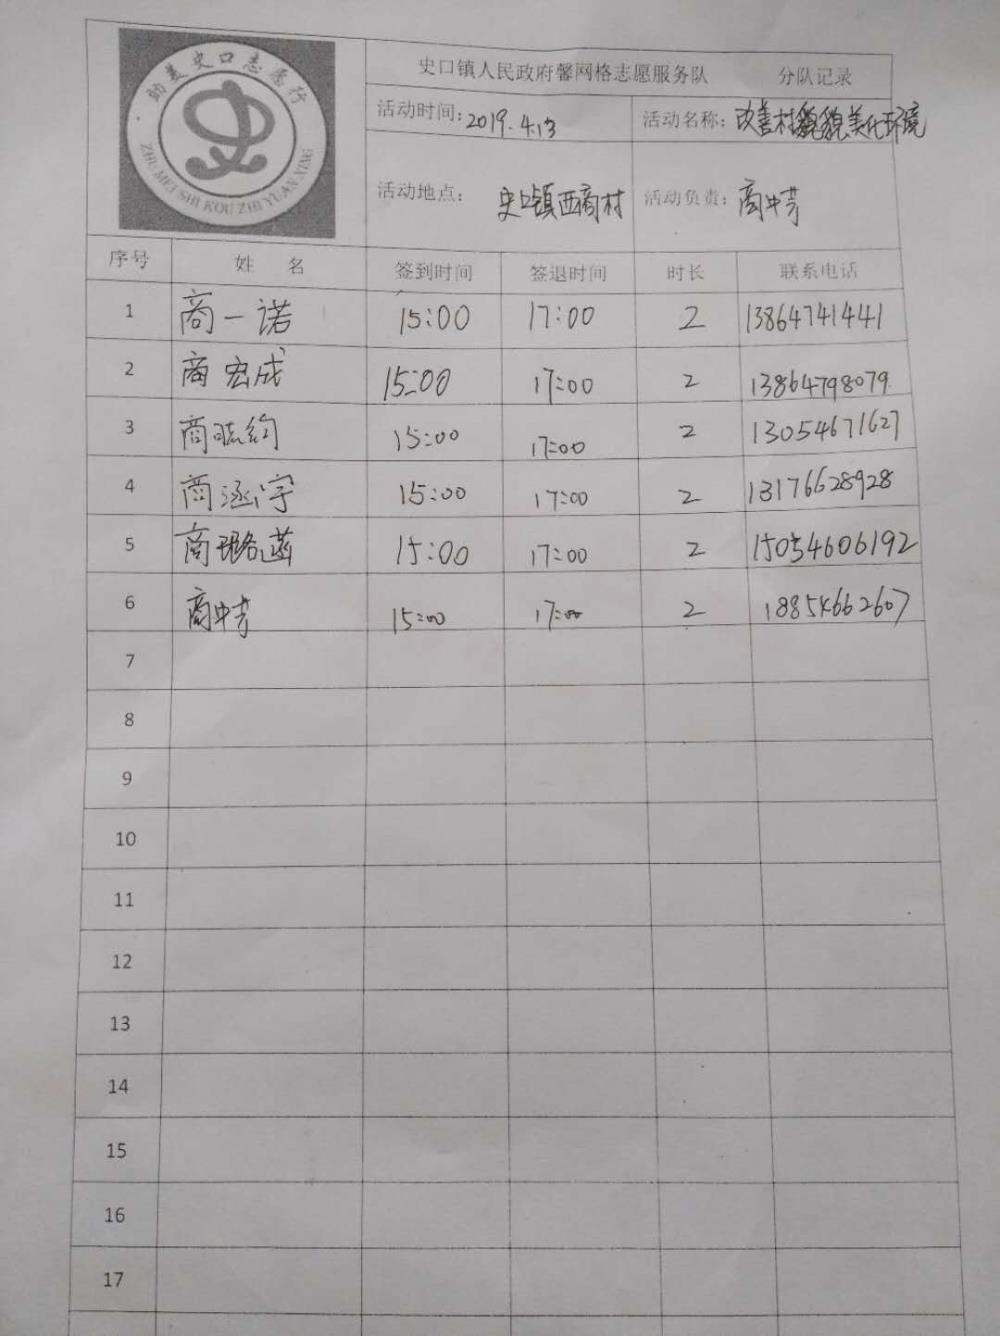 助美史口志愿行
ZHU MEI SHI KOU ZHI YUAN XING
史口镇人民政府馨网格志愿服务队 分队记录
活动时间: 2019.4.13 活动名称: 改善村貌美化环境
活动地点: 史口镇西商村 活动负责: 商中芳
序号 姓 名 签到时间 签退时间 时长 联系电话
1 商一诺 15:00 17:00 2 13864741441
2 商宏成 15:00 17:00 2 13864798079
3 商 15:00 17:00 2 13054671627
4 商涵宇 15:00 17:00 2 13176628928
5 商璐菡 15:00 17:00 2 15054606192
6 商中芳 15:00 17:00 2 18854662607
7
8
9
10
11
12
13
14
15
16
17